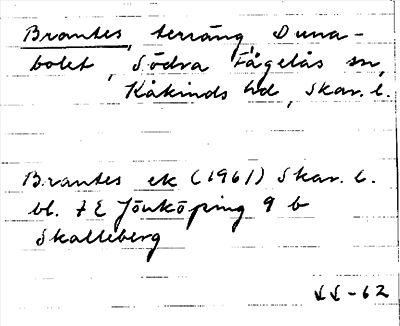 Brantes, terräng Duna-
bolet, Södra Fågelås sn,
Kåkinds hd, Skar. l.
Brantes ek (1961) Skar. l.
bl. 7 E Jönköping 9 b
Skalleberg
-62